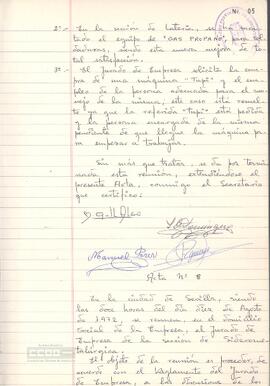 Nº 05
2º.- En la sección de Latería, se ha mon-
tado el equipo de "GAS PROPANO" para sol-
daduras, siendo esta nueva mejora de to-
tal satisfacción.
3º.- El Jurado de Empresa solicita la com-
pra de una máquina "Tupi" y el em-
pleo de la persona adecuada para el ma-
nejo de la misma, este caso está resuel-
to por que la referida "Tupi" está pedida
y la persona encargada de la misma
pendiente de que llegue la máquina
para empezar a trabajar.
Sin más que tratar, se da por termi-
nada esta reunión, extendiéndose el
presente Acta, conmigo el Secretario
que certifico:
Manuel Pérez
Acta Nº 8
En la ciudad de Sevilla, siendo
las doce horas del día diez de Agosto
de 1972, se reunen en el domicilio
social de la Empresa, el Jurado de
Empresa de la sección de Siderome-
talúrgica.
El objeto de la reunión es proceder, de
acuerdo con el Reglamento del Jurado
de Empresa, a las discusiones de los